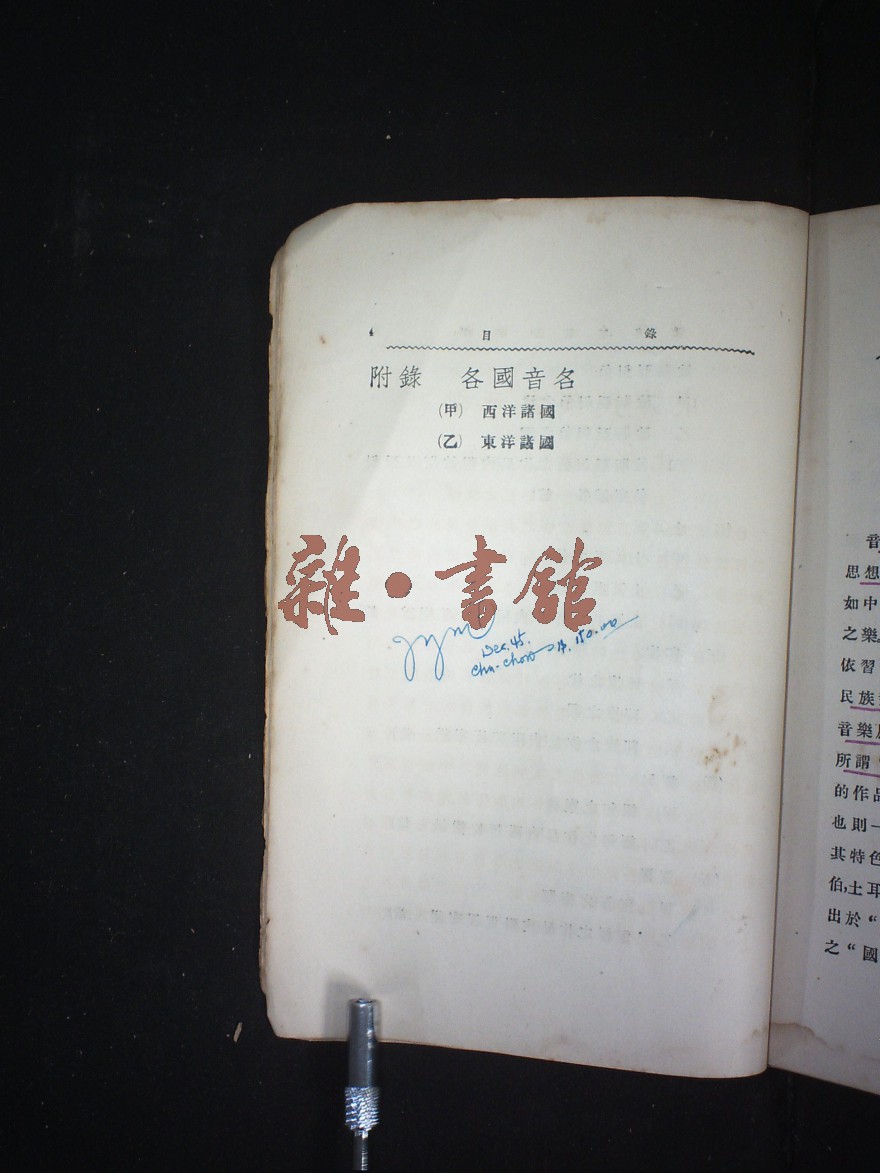 4 目 錄
附錄 各國音名
(甲) 西洋諸國
(乙) 東洋諸國
雜·書館
Dec. 45.
音
思想
如中
之樂,
依習
民族
音樂
所謂
的作品
也則一
其特色
伯,土耳
出於“
之“國